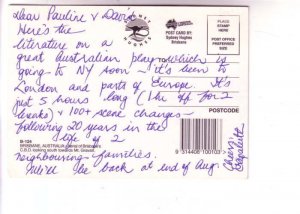 Dear Pauline & David
Here's the
literature on a
great Australian play which is
going to NY soon - it's been to
London and parts of Europe. It's
just 5 hours long (1 hr off for 2
breaks) & 100+ scene changes -
following 20 years in the
life of 2
neighbouring families.
We'll be back at end of Aug.
Cheers
POST CARD BY:
Sydney Hughes
Brisbane
PLACE
STAMP
HERE
POST OFFICE
PREFERRED
SIZE
HUGHES
POSTCODE
B-124
BRISBANE, AUSTRALIA
C.B.D. looking south towards Mt. Gravatt.
9 314406 100103